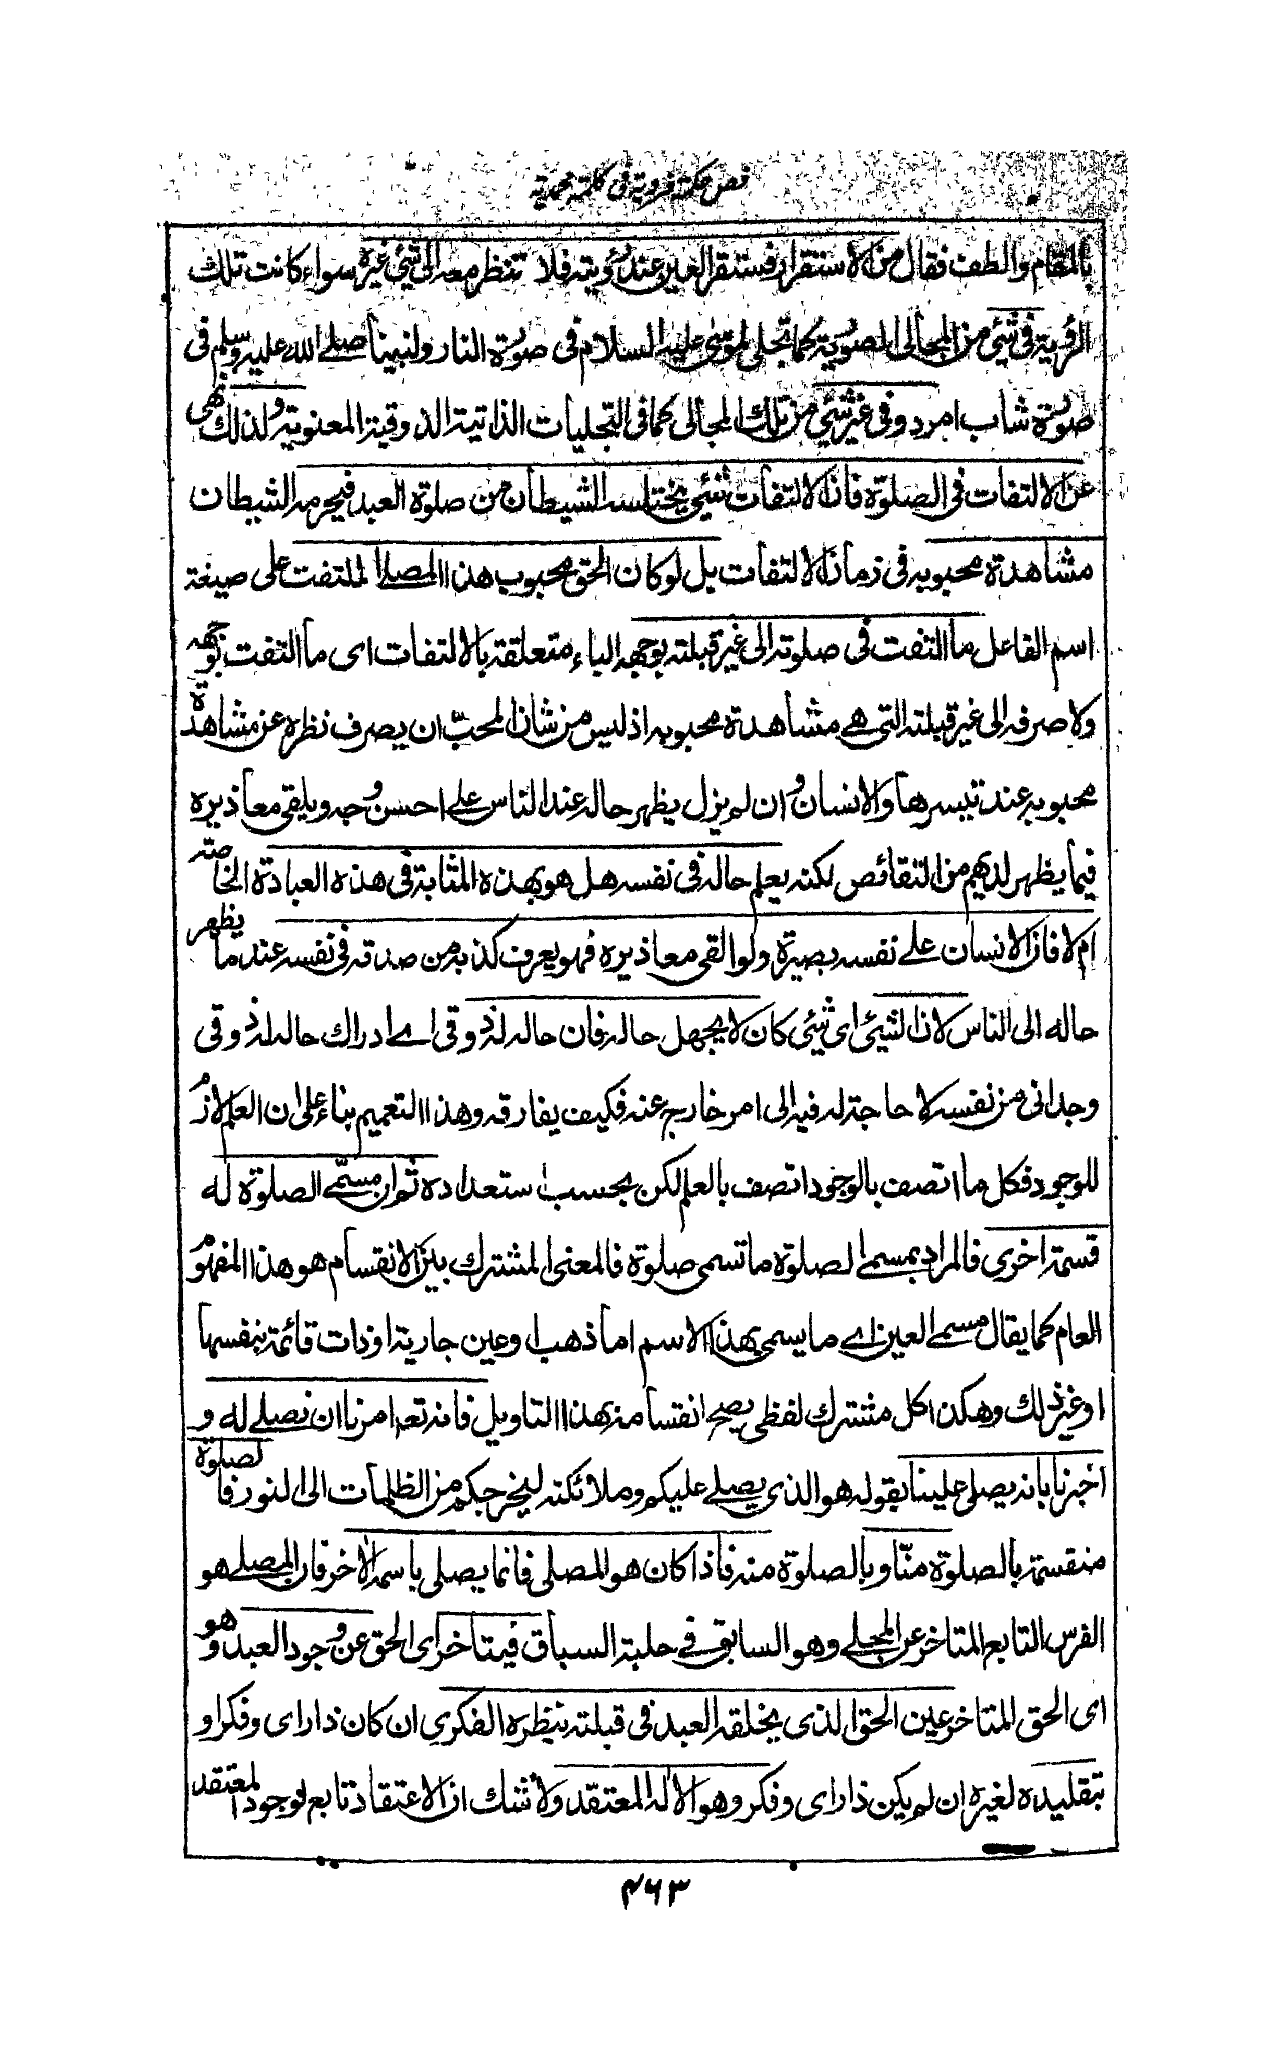 فص حكمة فردية فى كلمة محمدية
بالمقام والطف فقال من الاستقرار فستقر العين عند رؤيته فلا تنظر معه الى شئ غيره سواء كانت تلك
الرؤية فى شئ من المجالى الصورية كما تجلى لموسى عليه السلام فى صورة النار ولنبينا صلے الله عليه وسلم فى
صورة شاب امرد وفى غير شئ من تلك المجالى كما فى التجليات الذاتية الذوقية المعنوية ولذلك نهى
عن الالتفات فى الصلوة فان الالتفات شئ يختلسه الشيطان من صلوة العبد فيحرمه الشيطان
مشاهدة محبوبه فى زمان الالتفات بل لو كان الحق محبوب هذا المصلے الملتفت على صيغة
اسم الفاعل ما التفت فى صلوته الى غير قبلته بوجهه الباء متعلقة بالالتفات اى ما التفت بوجهه
ولا صرفه الى غير قبلته التى هے مشاهدة محبوبه اذ ليس من شان المحبّ ان يصرف نظره عن مشاهدة
محبوبه عند تيسرها والانسان وان لم يزل يظهر حاله عند الناس علے احسن وجه ويلقى معاذيره
فيما يظهر لديهم من النقائص لكنه يعلم حاله فى نفسه هل هو بهذه المثابة فى هذه العبادة الخاصة
ام لا فان الانسان علے نفسه بصيرة ولو القى معاذيره فهو يعرف كذبه من صدقه فى نفسه عند ما يظهر
حاله الى الناس لان الشئ اى شئ كان لا يجهل حاله فان حاله له ذوقى اے ادراك حاله له ذوقى
وجدانى من نفسه لا حاجة له فيه الى امر خارج عنه فكيف يفارقه وهذا التعميم بناء على ان العلم لازم
للوجود فكل ما اتصف بالوجود اتصف بالعلم لكن بحسب استعداده ثم ان مسمّے الصلوة له
قسمة اخرى فالمراد بمسمے الصلوة ما تسمى صلوة فالمعنى المشترك بين الانقسام هو هذا المفهوم
العام كما يقال مسمے العين اے ما يسمى بهذا الاسم اما ذهب او عين جارية او ذات قائمة بنفسها
او غير ذلك وهكذا كل مشترك لفظى يصح انقسامه بهذا التاويل فانه تعه امرنا ان نصلے له و
اخبرنا بانه يصلى علينا بقوله هو الذى يصلے عليكم وملائكته ليخرجكم من الظلمات الى النور فالصلوة
منقسمة بالصلوة منّا وبالصلوة منه فاذا كان هو المصلى فانما يصلى باسمه الاخر فان المصلے هو
الفرس التابع المتاخر عن المجلے وهو السابق فے حلبة السباق فيتاخر اى الحق عن وجود العبد وهو
اى الحق المتاخر عين الحق الذى يخلقه العبد فى قبلته بنظره الفكرى ان كان ذا راى وفكر او
بتقليده لغيره ان لم يكن ذا راى وفكر وهو الاله المعتقد ولا شك ان الاعتقاد تابع لوجود المعتقد
۴۶۳